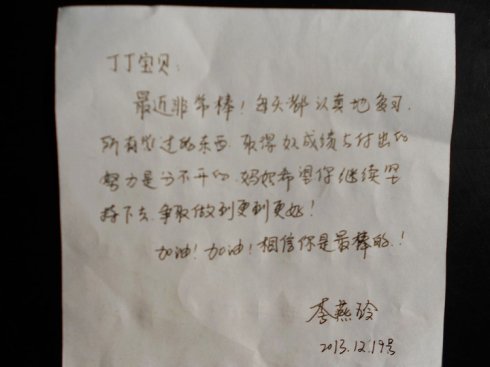 丁丁宝贝
最近非常棒！每天都认真地复习
所有学过的东西.取得好成绩与付出的
努力是分不开的.妈妈希望你继续坚
持下去.争取做到更到更好！
加油！加油！相信你是最棒的.！
李燕玲
2013.12.19号